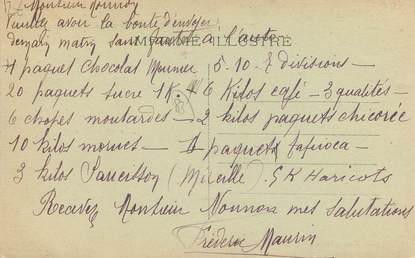 Monsieur Nonnon
Veuillez avoir la bonté d'envoyer
demain matin sans faute à l'auto
ILLUSTRÉ
1 paquet chocolat Meunier 5. 10. 8 divisions —
20 paquets sucre 1 K. 6 Kilos café — 3 qualités —
6 chopes moutardes — 2 kilos paquets chicorée
10 kilos morues — 4 paquets tapioca —
3 kilos (Mireille). 5 K Haricots
Recevez Monsieur Nonnon mes salutations
Frédéric Maurin